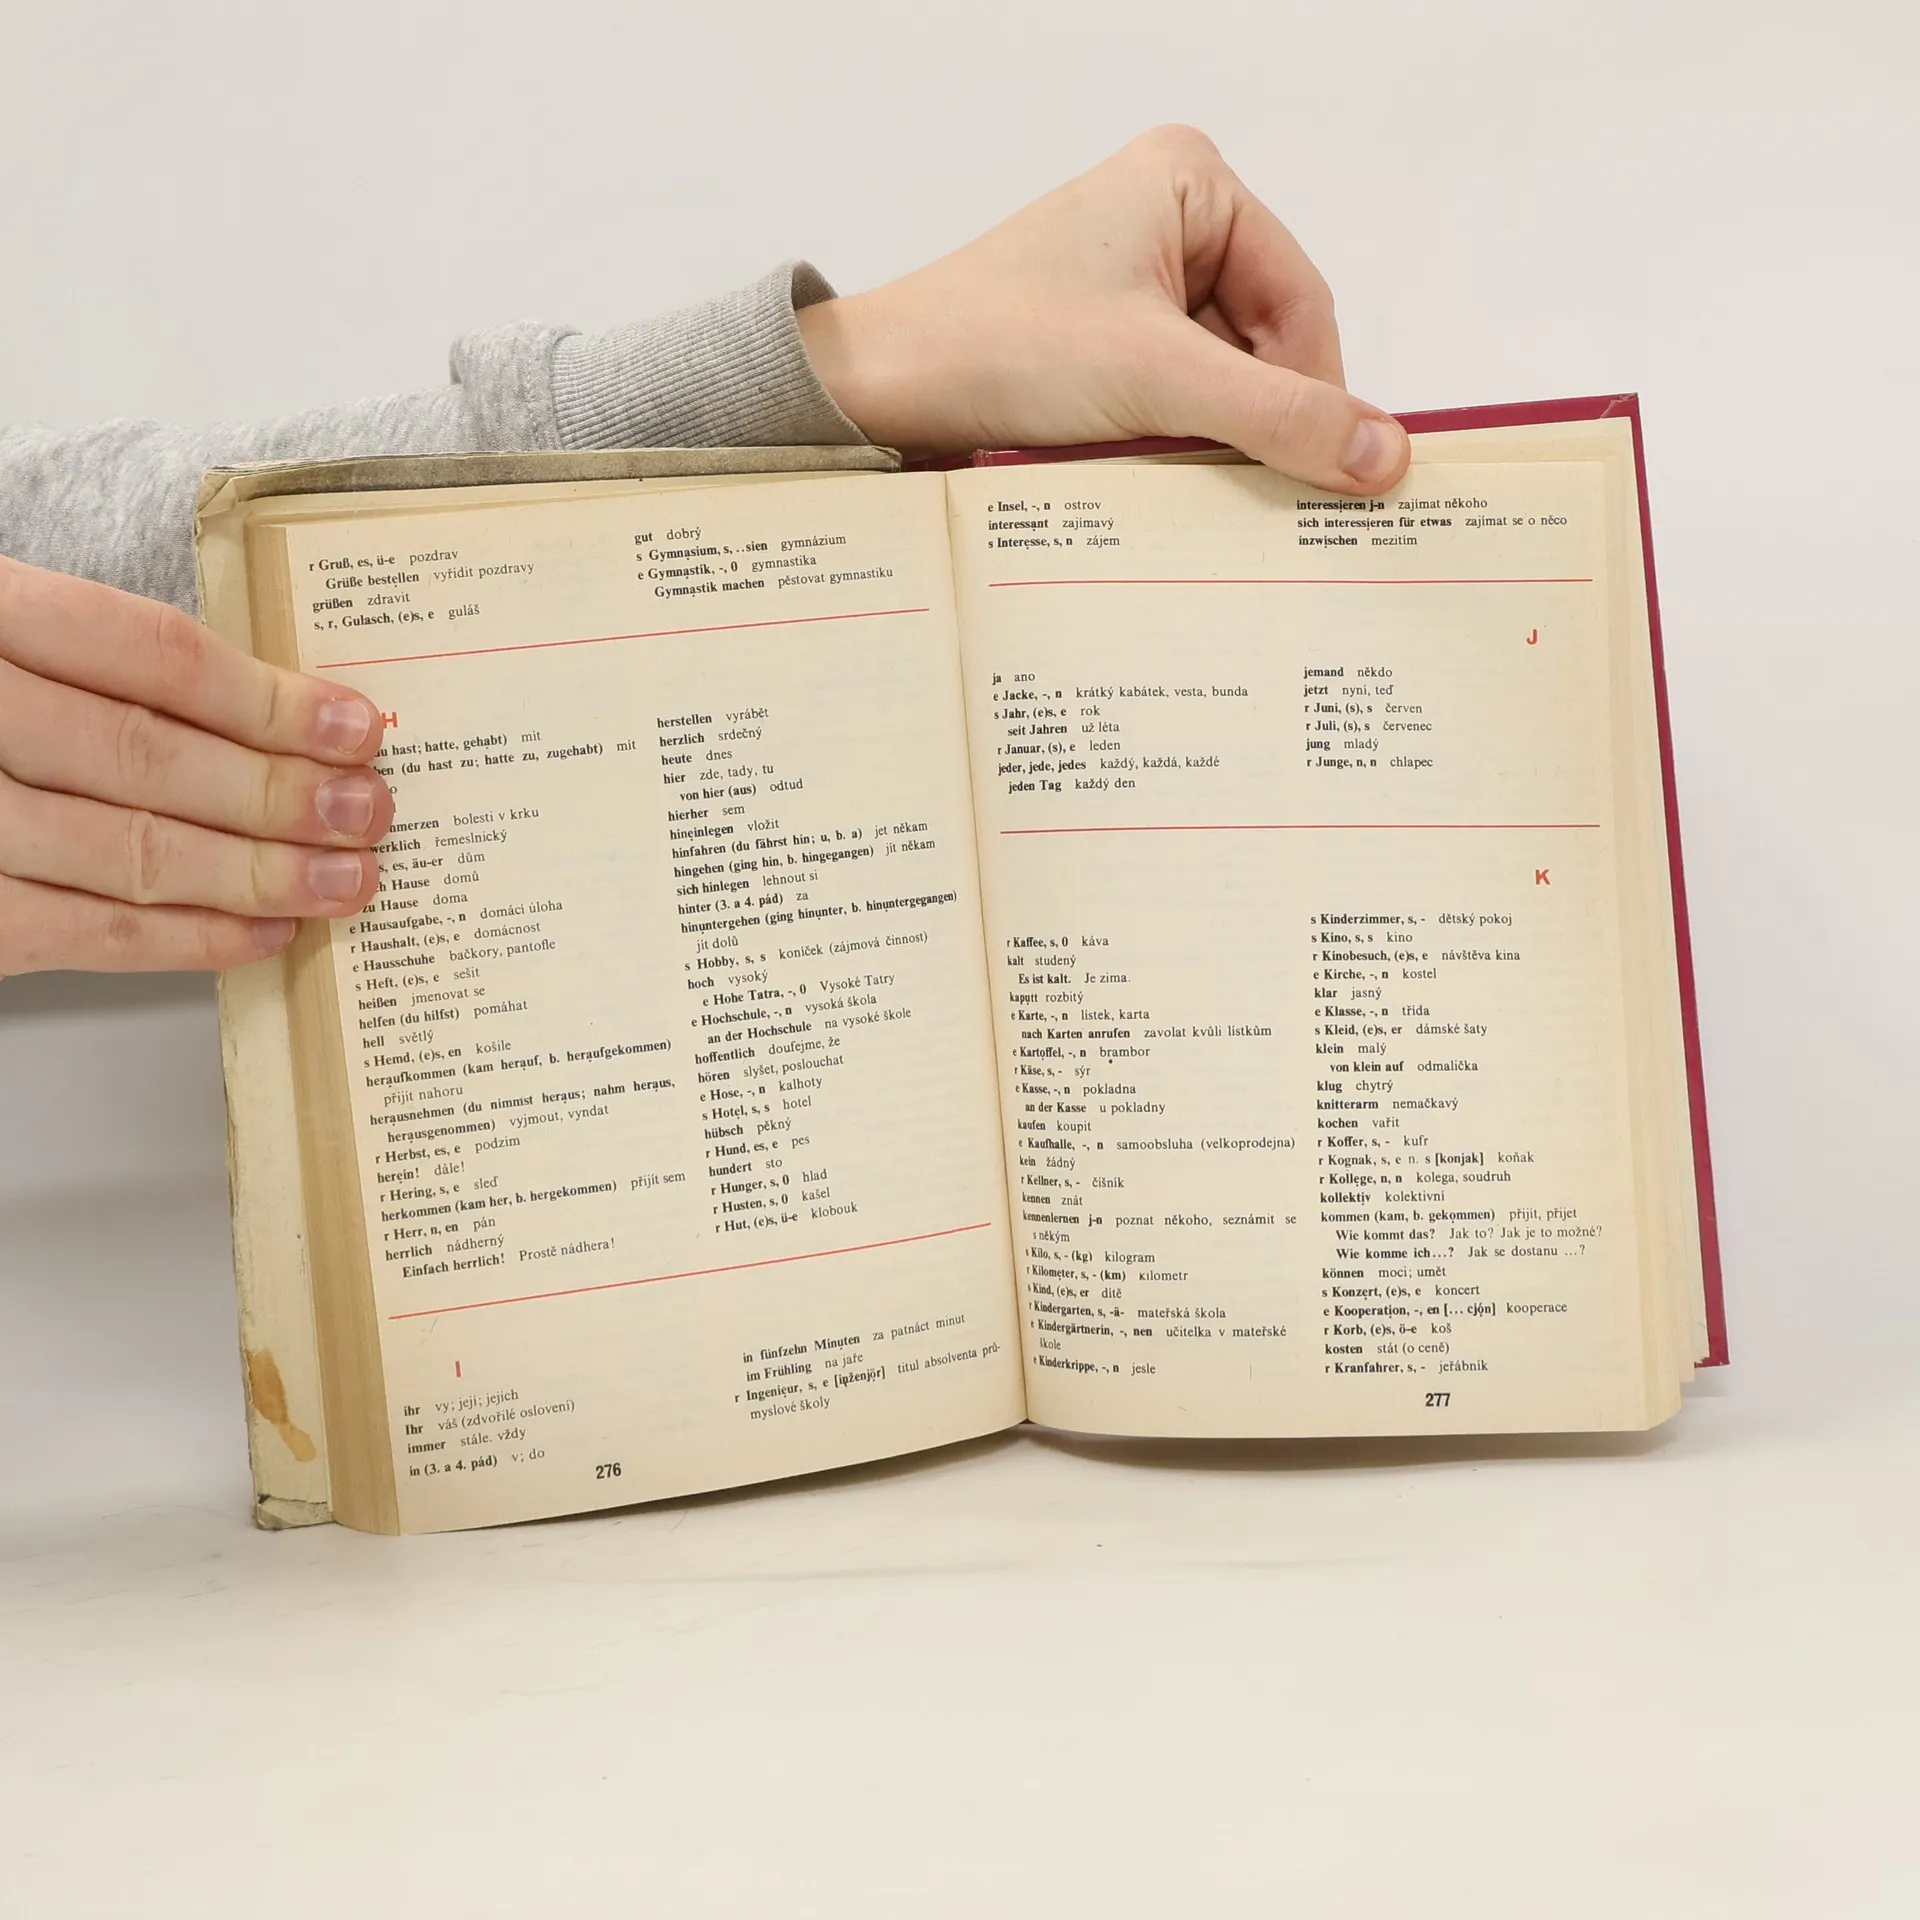 r Gruß, es, ü-e pozdrav
Grüße bestellen vyřídit pozdravy
grüßen zdravit
s, r, Gulasch, (e)s, e guláš
gut dobrý
s Gymnasium, s, ..sien gymnázium
e Gymnastik, -, 0 gymnastika
Gymnastik machen pěstovat gymnastiku
H
du hast; hatte, gehabt) mít
(du hast zu; hatte zu, zugehabt) mít
bolesti v krku
řemeslnický
es, äu-er dům
Hause domů
zu Hause doma
e Hausaufgabe, -, n domácí úloha
r Haushalt, (e)s, e domácnost
e Hausschuhe bačkory, pantofle
s Heft, (e)s, e sešit
heißen jmenovat se
helfen (du hilfst) pomáhat
hell světlý
s Hemd, (e)s, en košile
heraufkommen (kam herauf, b. heraufgekommen)
přijít nahoru
herausnehmen (du nimmst heraus; nahm heraus,
herausgenommen) vyjmout, vyndat
r Herbst, es, e podzim
herein! dále!
r Hering, s, e sleď
herkommen (kam her, b. hergekommen) přijít sem
r Herr, n, en pán
herrlich nádherný
Einfach herrlich! Prostě nádhera!
herstellen vyrábět
herzlich srdečný
heute dnes
hier zde, tady, tu
von hier (aus) odtud
hierher sem
hineinlegen vložit
hinfahren (du fährst hin; u, b. a) jet někam
hingehen (ging hin, b. hingegangen) jít někam
sich hinlegen lehnout si
hinter (3. a 4. pád) za
hinuntergehen (ging hinunter, b. hinuntergegangen)
jít dolů
s Hobby, s, s koníček (zájmová činnost)
hoch vysoký
e Hohe Tatra, -, 0 Vysoké Tatry
e Hochschule, -, n vysoká škola
an der Hochschule na vysoké škole
hoffentlich doufejme, že
hören slyšet, poslouchat
e Hose, -, n kalhoty
s Hotel, s, s hotel
hübsch pěkný
r Hund, es, e pes
hundert sto
r Hunger, s, 0 hlad
r Husten, s, 0 kašel
r Hut, (e)s, ü-e klobouk
I
ihr vy; její; jejich
Ihr váš (zdvořilé oslovení)
immer stále. vždy
in (3. a 4. pád) v; do
in fünfzehn Minuten za patnáct minut
im Frühling na jaře
r Ingenieur, s, e [inženjör] titul absolventa prů-
myslové školy
276
e Insel, -, n ostrov
interessant zajímavý
s Interesse, s, n zájem
interessieren j-n zajímat někoho
sich interessieren für etwas zajímat se o něco
inzwischen mezitím
J
ja ano
e Jacke, -, n krátký kabátek, vesta, bunda
s Jahr, (e)s, e rok
seit Jahren už léta
r Januar, (s), e leden
jeder, jede, jedes každý, každá, každé
jeden Tag každý den
jemand někdo
jetzt nyní, teď
r Juni, (s), s červen
r Juli, (s), s červenec
jung mladý
r Junge, n, n chlapec
K
r Kaffee, s, 0 káva
kalt studený
Es ist kalt. Je zima.
kaputt rozbitý
e Karte, -, n lístek, karta
nach Karten anrufen zavolat kvůli lístkům
e Kartoffel, -, n brambor
r Käse, s, - sýr
e Kasse, -, n pokladna
an der Kasse u pokladny
kaufen koupit
e Kaufhalle, -, n samoobsluha (velkoprodejna)
kein žádný
r Kellner, s, - číšník
kennen znát
kennenlernen j-n poznat někoho, seznámit se
s někým
s Kilo, s, - (kg) kilogram
r Kilometer, s, - (km) kilometr
s Kind, (e)s, er dítě
r Kindergarten, s, -ä- mateřská škola
e Kindergärtnerin, -, nen učitelka v mateřské
škole
e Kinderkrippe, -, n jesle
s Kinderzimmer, s, - dětský pokoj
s Kino, s, s kino
r Kinobesuch, (e)s, e návštěva kina
e Kirche, -, n kostel
klar jasný
e Klasse, -, n třída
s Kleid, (e)s, er dámské šaty
klein malý
von klein auf odmalička
klug chytrý
knitterarm nemačkavý
kochen vařit
r Koffer, s, - kufr
r Kognak, s, e n. s [konjak] koňak
r Kollege, n, n kolega, soudruh
kollektiv kolektivní
kommen (kam, b. gekommen) přijít, přijet
Wie kommt das? Jak to? Jak je to možné?
Wie komme ich...? Jak se dostanu ...?
können moci; umět
s Konzert, (e)s, e koncert
e Kooperation, -, en [... cjón] kooperace
r Korb, (e)s, ö-e koš
kosten stát (o ceně)
r Kranfahrer, s, - jeřábník
277